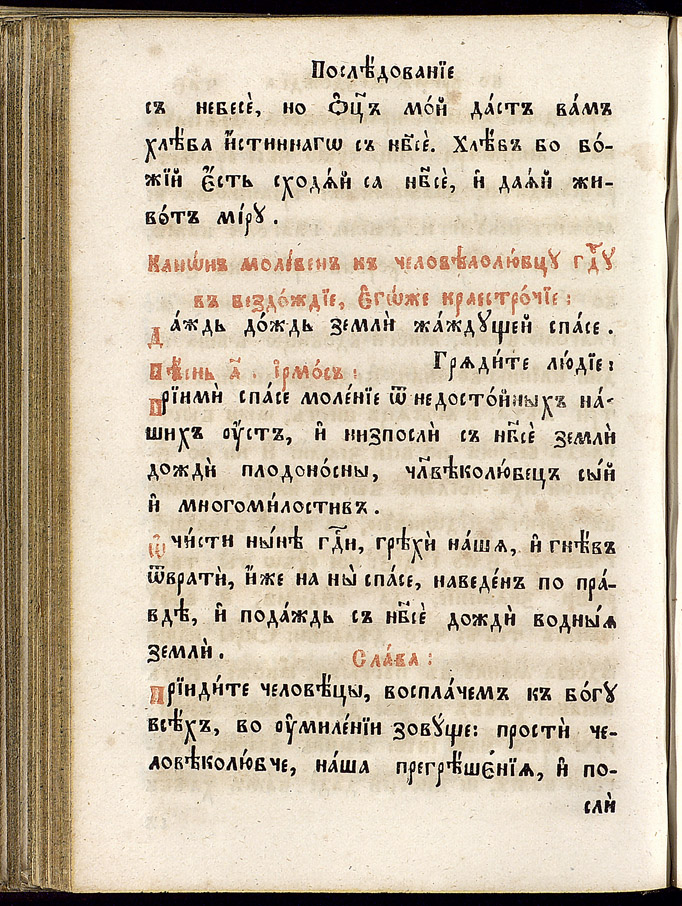 Послѣ́дованїе
съ небесѐ, но ѻ҆ц҃ъ мо́й да́стъ ва́мъ
хлѣ́ба и҆́стиннагѡ съ нб҃сѐ. Хлѣ́въ бо бо́-
жїй є҆́сть сходѧ́й са нб҃сѐ, и҆ даѧ́й жи-
во́тъ мі́рꙋ.
Канѡ́нъ моле́бенъ къ человѣколю́бцꙋ гд҇ꙋ
въ бездо́ждїе, є҆гѡ́же краестро́чїе:
Да́ждь до́ждь землѝ жа́ждꙋщей спа́се.
Грѧди́те лю́дїе:
Пѣ́снь а҃. і҆рмо́съ:
Прїимѝ спа́се моле́нїе ѿ недосто́йныхъ на́-
шихъ оу҆́стъ, и҆ низпослѝ съ нб҃сѐ землѝ
дождѝ плодоно́сны, чл҃вѣколю́бецъ сы́й
и҆ многоми́лостивъ.
Ѡ҆чи́сти ны́нѣ гд҇и, грѣхѝ на́шѧ, и҆ гнѣ́въ
ѿвратѝ, и҆́же на ны̀ спа́се, наведе́нъ по пра́-
вдѣ, и҆ пода́ждь съ нб҃сѐ дождѝ водны́ѧ
землѝ.
Сла́ва:
Прїиди́те человѣ́цы, воспла́чемъ къ бо́гꙋ
всѣ́хъ, во оу҆миле́нїи зовꙋще: простѝ че-
ловѣколю́бче, на́ша прегрѣше́нїѧ, и҆ по-
слѝ